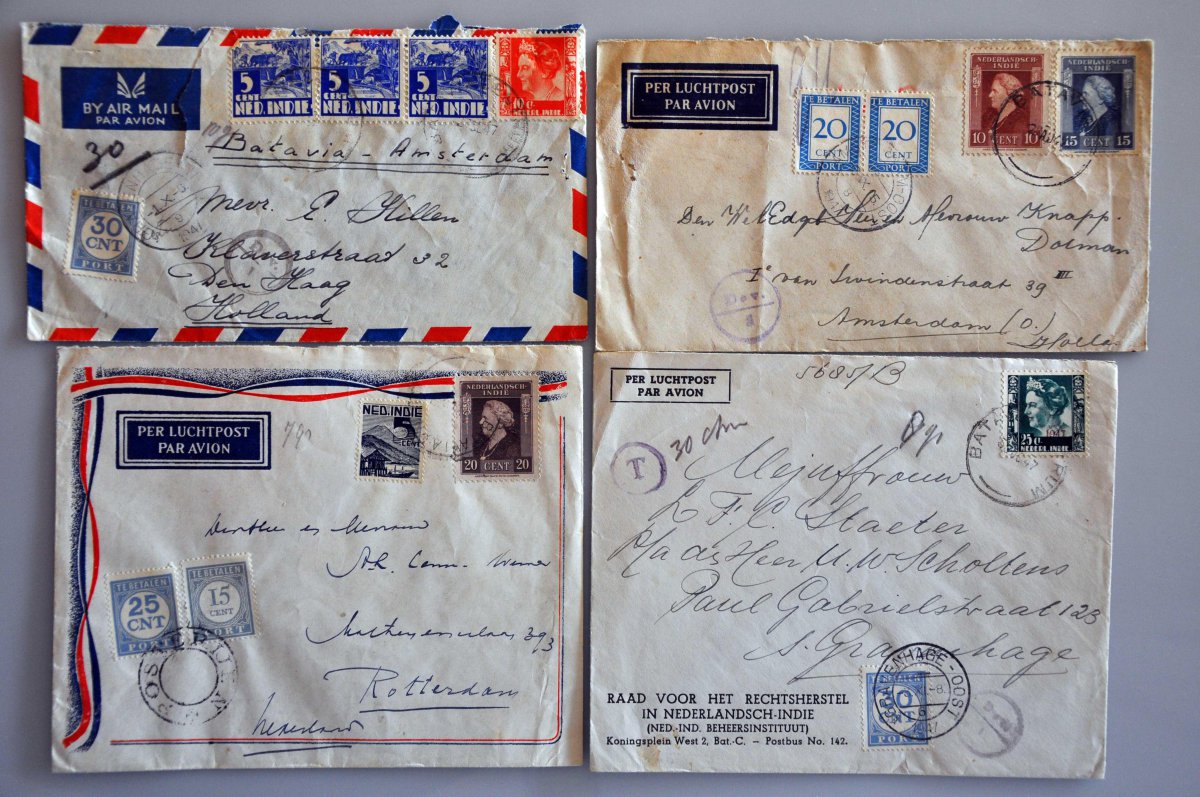 BY AIR MAIL
PAR AVION
5
CENT
NED. INDIE
5
CENT
NED. INDIE
5
CENT
NED. INDIE
10 c.
NEDERL. INDIE
30
Batavia - Amsterdam!
TE BETALEN
30
CNT
PORT
Mevr. E. Hillen
Klaverstraat 32
Den Haag
Holland
PER LUCHTPOST
PAR AVION
TE BETALEN
20
CENT
PORT
TE BETALEN
20
CENT
PORT
NEDERLANDSCH-
INDIE
10 CENT 10
NEDERLANDSCH-
INDIE
15 CENT 15
Mevrouw Knapp-
Dolman
1e van Swindenstraat 39 III
Amsterdam (O.)
Dev.
PER LUCHTPOST
PAR AVION
NED. INDIE
5
CENT
NEDERLANDSCH-
INDIE
20 CENT 20
TE BETALEN
25
CNT
PORT
TE BETALEN
15
CENT
PORT
393
Rotterdam
Nederland
PER LUCHTPOST
PAR AVION
5685/B
T
30 ctm
25 c.
1947
NEDERL. INDIE
Mejuffrouw
L. F. C. Slaeter
p/a de Heer M. W. Scholtens
Paul Gabrielstraat 123
s. Gravenhage
RAAD VOOR HET RECHTSHERSTEL
IN NEDERLANDSCH-INDIE
(NED.-IND. BEHEERSINSTITUUT)
Koningsplein West 2, Bat.-C. - Postbus No. 142.
PORT